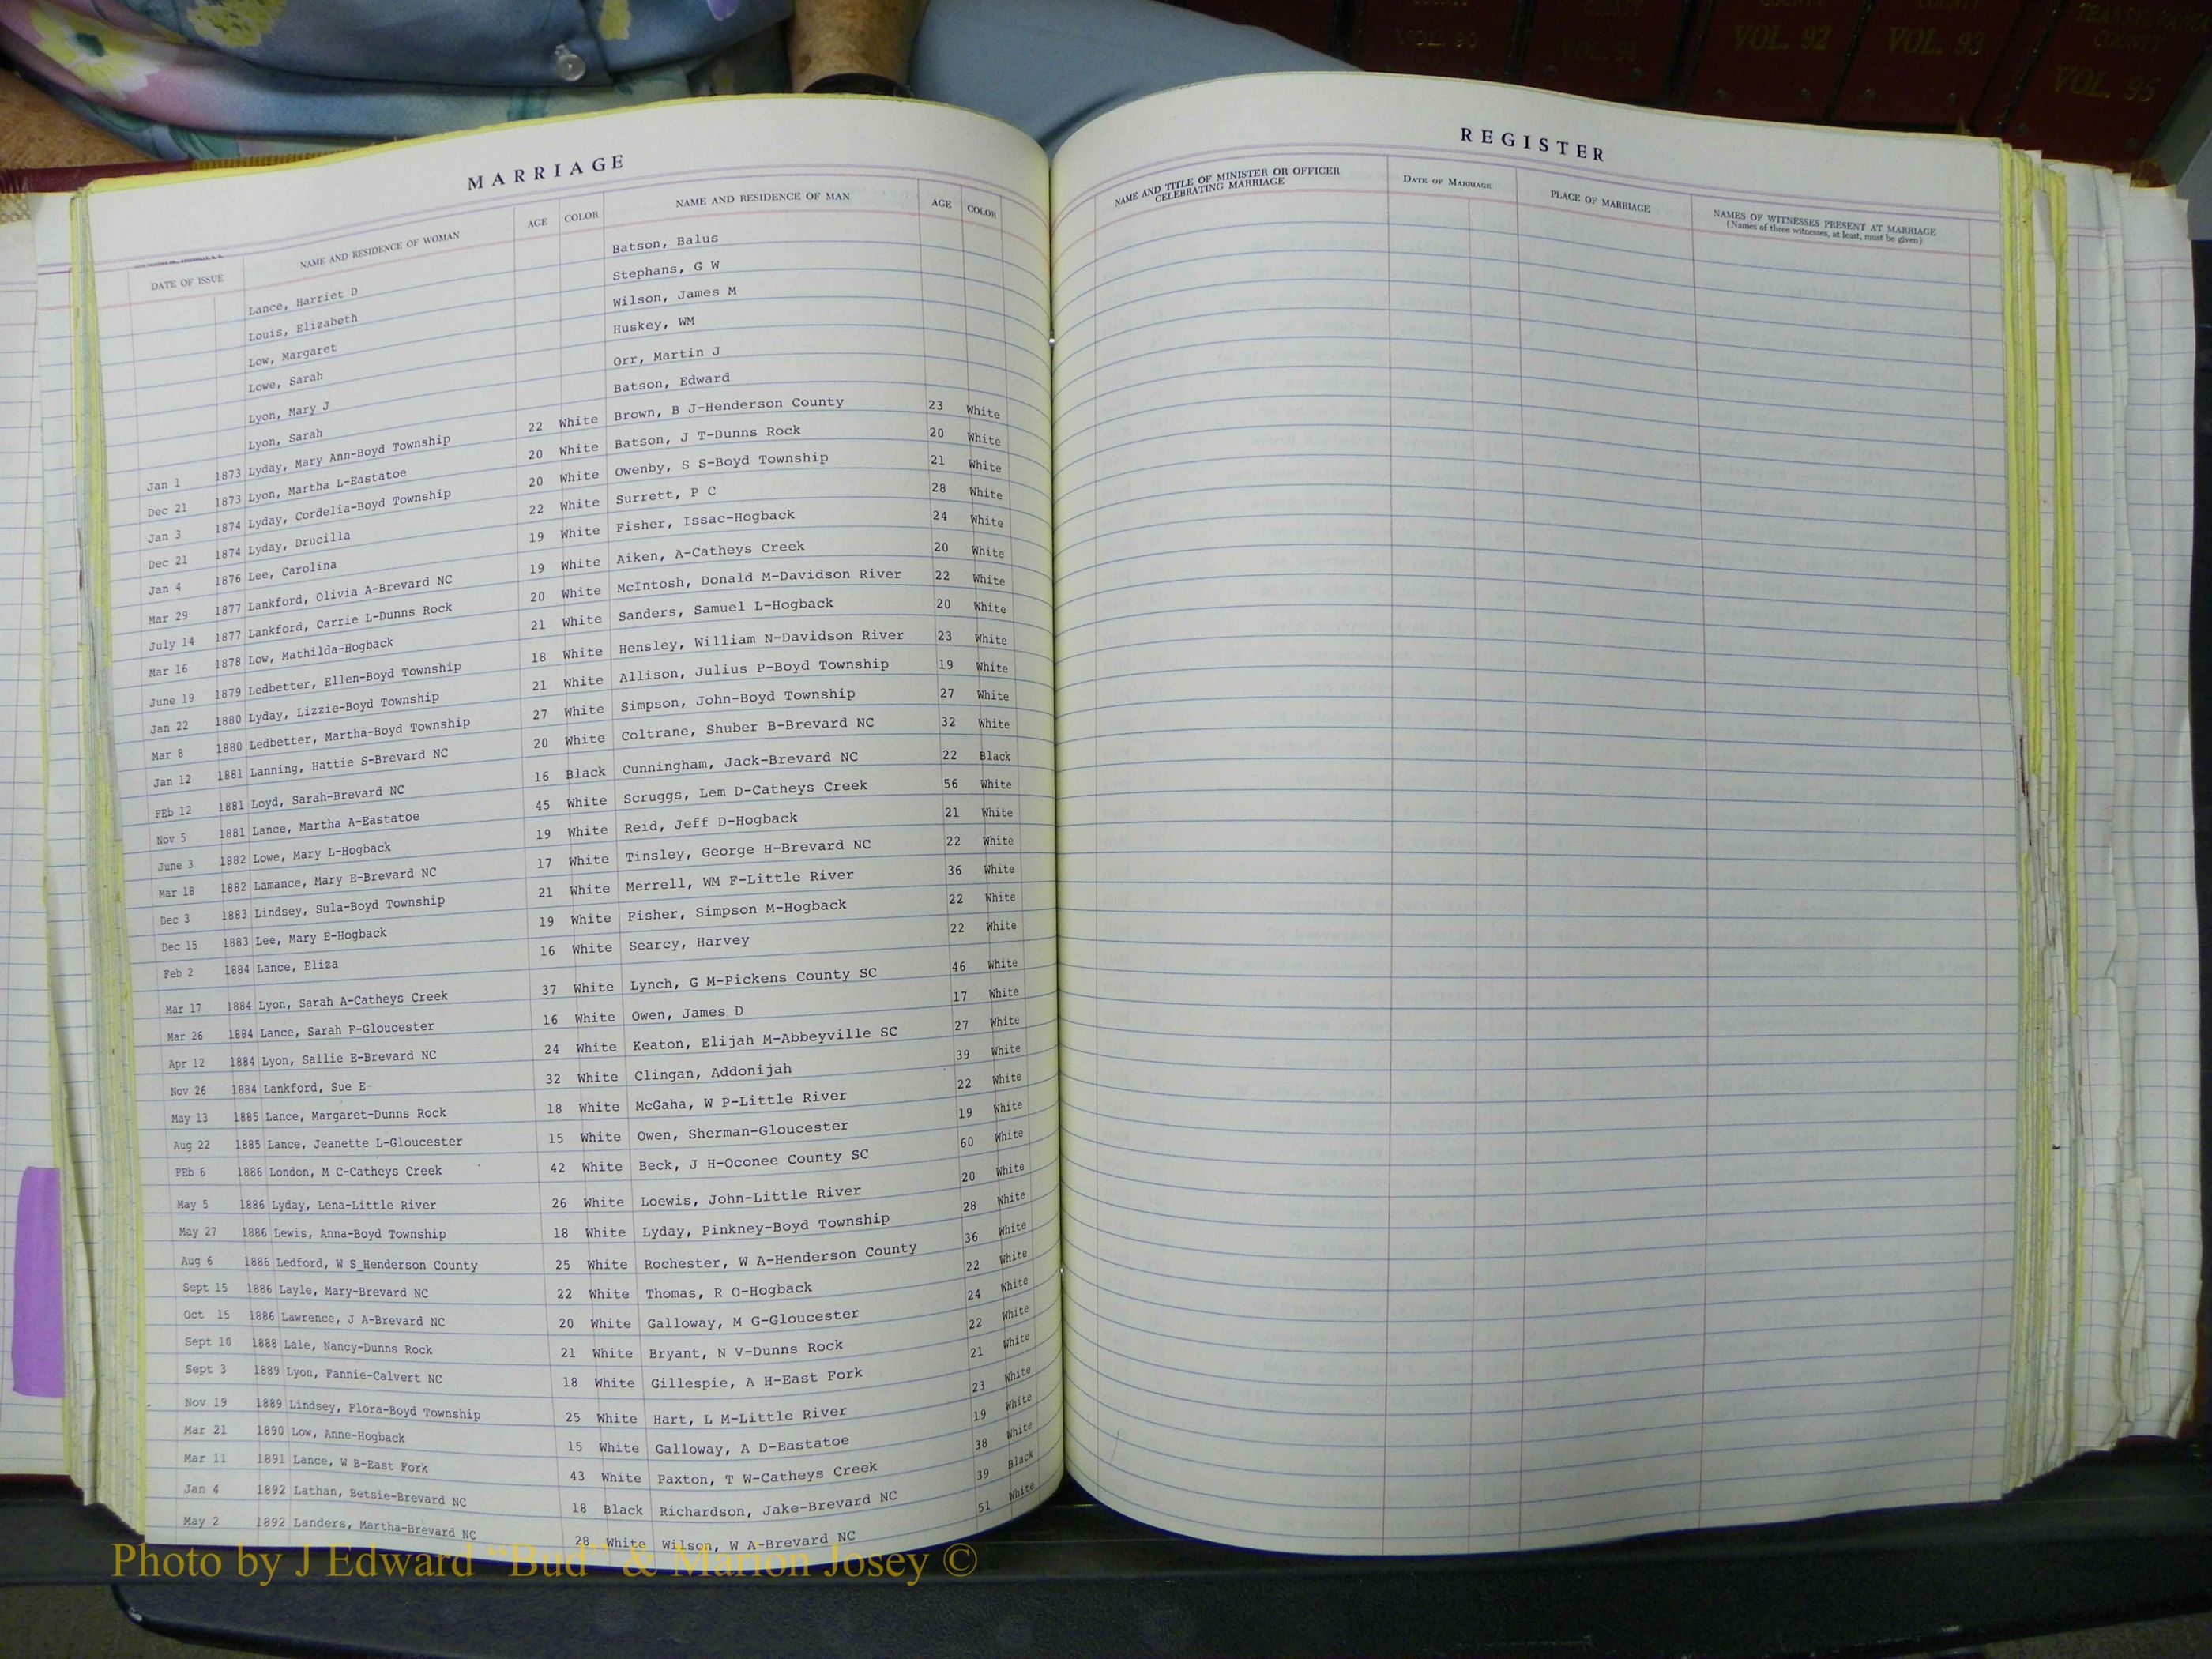 VOL. 90
VOL. 92
VOL. 93
TRANSYLVANIA
COUNTY
VOL. 95
MARRIAGE
DATE OF ISSUE NAME AND RESIDENCE OF WOMAN AGE COLOR NAME AND RESIDENCE OF MAN AGE COLOR
Lance, Harriet D Batson, Balus
Louis, Elizabeth Stephans, G W
Low, Margaret Wilson, James M
Lowe, Sarah Huskey, WM
Lyon, Mary J Orr, Martin J
Lyon, Sarah Batson, Edward
Jan 1 1873 Lyday, Mary Ann-Boyd Township 22 White Brown, B J-Henderson County 23 White
Dec 21 1873 Lyon, Martha L-Eastatoe 20 White Batson, J T-Dunns Rock 20 White
Jan 3 1874 Lyday, Cordelia-Boyd Township 20 White Owenby, S S-Boyd Township 21 White
Dec 21 1874 Lyday, Drucilla 22 White Surrett, P C 28 White
Jan 4 1876 Lee, Carolina 19 White Fisher, Issac-Hogback 24 White
Mar 29 1877 Lankford, Olivia A-Brevard NC 19 White Aiken, A-Catheys Creek 20 White
July 14 1877 Lankford, Carrie L-Dunns Rock 20 White McIntosh, Donald M-Davidson River 22 White
Mar 16 1878 Low, Mathilda-Hogback 21 White Sanders, Samuel L-Hogback 20 White
June 19 1879 Ledbetter, Ellen-Boyd Township 18 White Hensley, William N-Davidson River 23 White
Jan 22 1880 Lyday, Lizzie-Boyd Township 21 White Allison, Julius P-Boyd Township 19 White
Mar 8 1880 Ledbetter, Martha-Boyd Township 27 White Simpson, John-Boyd Township 27 White
Jan 12 1881 Lanning, Hattie S-Brevard NC 20 White Coltrane, Shuber B-Brevard NC 32 White
FEb 12 1881 Loyd, Sarah-Brevard NC 16 Black Cunningham, Jack-Brevard NC 22 Black
Nov 5 1881 Lance, Martha A-Eastatoe 45 White Scruggs, Lem D-Catheys Creek 56 White
June 3 1882 Lowe, Mary L-Hogback 19 White Reid, Jeff D-Hogback 21 White
Mar 18 1882 Lamance, Mary E-Brevard NC 17 White Tinsley, George H-Brevard NC 22 White
Dec 3 1883 Lindsey, Sula-Boyd Township 21 White Merrell, WM F-Little River 36 White
Dec 15 1883 Lee, Mary E-Hogback 19 White Fisher, Simpson M-Hogback 22 White
Feb 2 1884 Lance, Eliza 16 White Searcy, Harvey 22 White
Mar 17 1884 Lyon, Sarah A-Catheys Creek 37 White Lynch, G M-Pickens County SC 46 White
Mar 26 1884 Lance, Sarah F-Gloucester 16 White Owen, James D 17 White
Apr 12 1884 Lyon, Sallie E-Brevard NC 24 White Keaton, Elijah M-Abbeyville SC 27 White
Nov 26 1884 Lankford, Sue E 32 White Clingan, Addonijah 39 White
May 13 1885 Lance, Margaret-Dunns Rock 18 White McGaha, W P-Little River 22 White
Aug 22 1885 Lance, Jeanette L-Gloucester 15 White Owen, Sherman-Gloucester 19 White
FEb 6 1886 London, M C-Catheys Creek 42 White Beck, J H-Oconee County SC 60 White
May 5 1886 Lyday, Lena-Little River 26 White Loewis, John-Little River 20 White
May 27 1886 Lewis, Anna-Boyd Township 18 White Lyday, Pinkney-Boyd Township 28 White
Aug 6 1886 Ledford, W S_Henderson County 25 White Rochester, W A-Henderson County 36 White
Sept 15 1886 Layle, Mary-Brevard NC 22 White Thomas, R O-Hogback 22 White
Oct 15 1886 Lawrence, J A-Brevard NC 20 White Galloway, M G-Gloucester 24 White
Sept 10 1888 Lale, Nancy-Dunns Rock 21 White Bryant, N V-Dunns Rock 22 White
Sept 3 1889 Lyon, Fannie-Calvert NC 18 White Gillespie, A H-East Fork 21 White
Nov 19 1889 Lindsey, Flora-Boyd Township 25 White Hart, L M-Little River 23 White
Mar 21 1890 Low, Anne-Hogback 15 White Galloway, A D-Eastatoe 19 White
Mar 11 1891 Lance, W B-East Fork 43 White Paxton, T W-Catheys Creek 38 White
Jan 4 1892 Lathan, Betsie-Brevard NC 18 Black Richardson, Jake-Brevard NC 39 Black
May 2 1892 Landers, Martha-Brevard NC 28 White Wilson, W A-Brevard NC 51 White
REGISTER
NAME AND TITLE OF MINISTER OR OFFICER CELEBRATING MARRIAGE DATE OF MARRIAGE PLACE OF MARRIAGE NAMES OF WITNESSES PRESENT AT MARRIAGE
(Names of three witnesses, at least, must be given)
Photo by J Edward “Bud” & Marion Josey ©